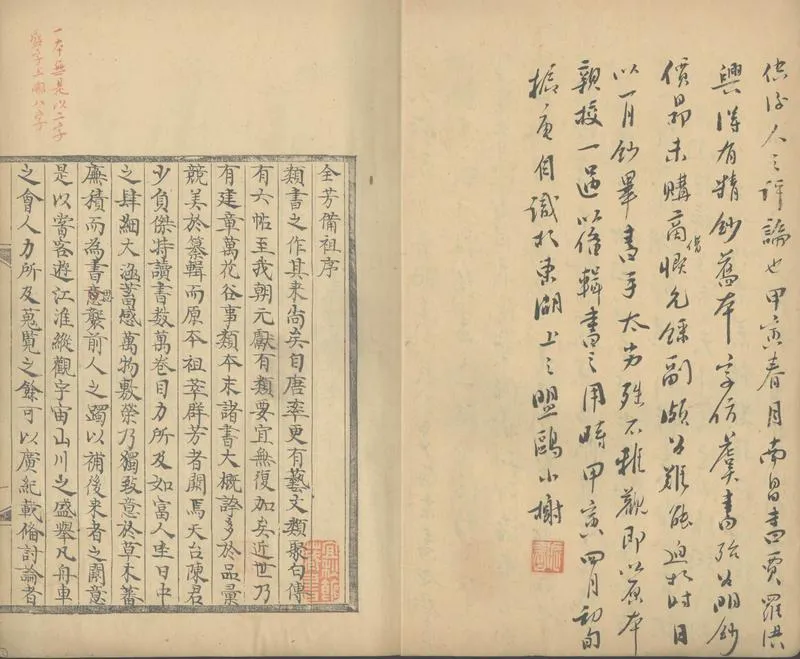 供後人之評論也甲寅春月南昌書賈羅洪
興得有精鈔舊本字仿虞書殆为明鈔
價昻未購商借慨允録副頗为難能迫於时日
以一月鈔畢書手太劣殊不雅觀即以原本
親校一過以備輯書之用時甲寅四月初旬
振唐自識於東湖上之盟鷗小榭
一本無是以二字
盛字上闕八字
全芳備祖序
類書之作其来尚矣自唐率更有藝文類聚白傅
有六帖至我朝元獻有類要宜無復加矣近世乃
有建章萬花谷事類本末諸書大概誇多於品彙
競美於纂輯而原本祖萃群芳者闕焉天台陳君
少負傑特讀書数萬卷目力所及如富人坐日中
之肆細大涵蓄感萬物敷榮乃獨致意於草木蕃
廡積而為書意襲前人之躅以補後来者之闕意
是以嘗客遊江淮縱觀宇宙山川之盛舉凡舟車
之會人力所及蒐覧之餘可以廣紀載俻討論者